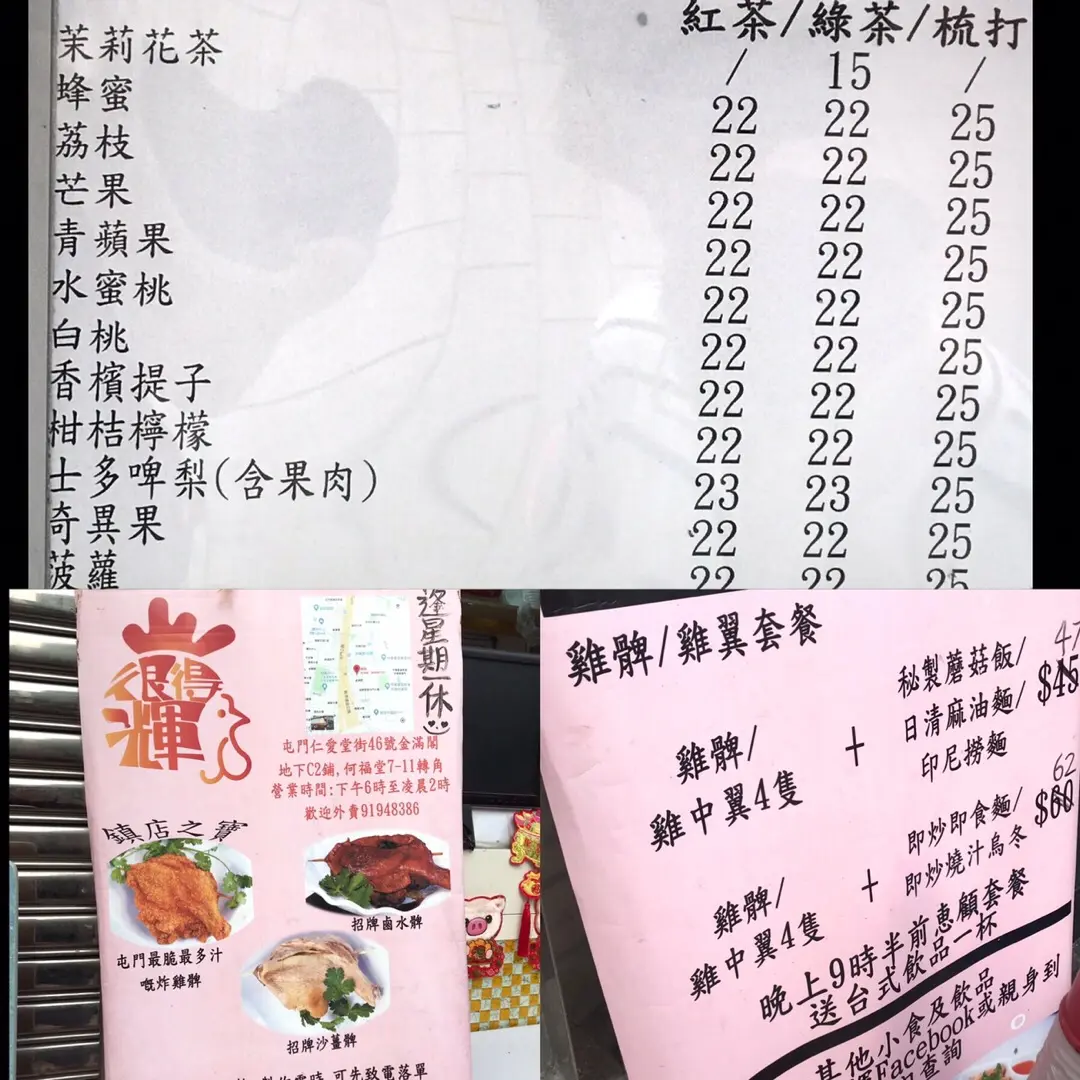 紅茶/綠茶/梳打
茉莉花茶 / 15 /
蜂蜜 22 22 25
荔枝 22 22 25
芒果 22 22 25
青蘋果 22 22 25
水蜜桃 22 22 25
白桃 22 22 25
香檳提子 22 22 25
柑桔檸檬 22 22 25
士多啤梨(含果肉) 23 23 25
奇異果 22 22 25
菠蘿 22 22 25
很得
輝
逢星期一休
屯門仁愛堂街46號金滿閣
地下C2鋪,何福堂7-11轉角
營業時間:下午6時至凌晨2時
歡迎外賣91948386
鎮店之寶
屯門最脆最多汁
嘅炸雞髀
招牌鹵水髀
招牌沙薑髀
可先致電落單
雞髀/雞翼套餐
雞髀/
雞中翼4隻
+
秘製蘑菇飯/
日清麻油麵/
印尼撈麵
47
$45
雞髀/
雞中翼4隻
+
即炒即食麵/
即炒燒汁烏冬
62
$60
晚上9時半前惠顧套餐
送台式飲品一杯
其他小食及飲品
Facebook或親身到
查詢